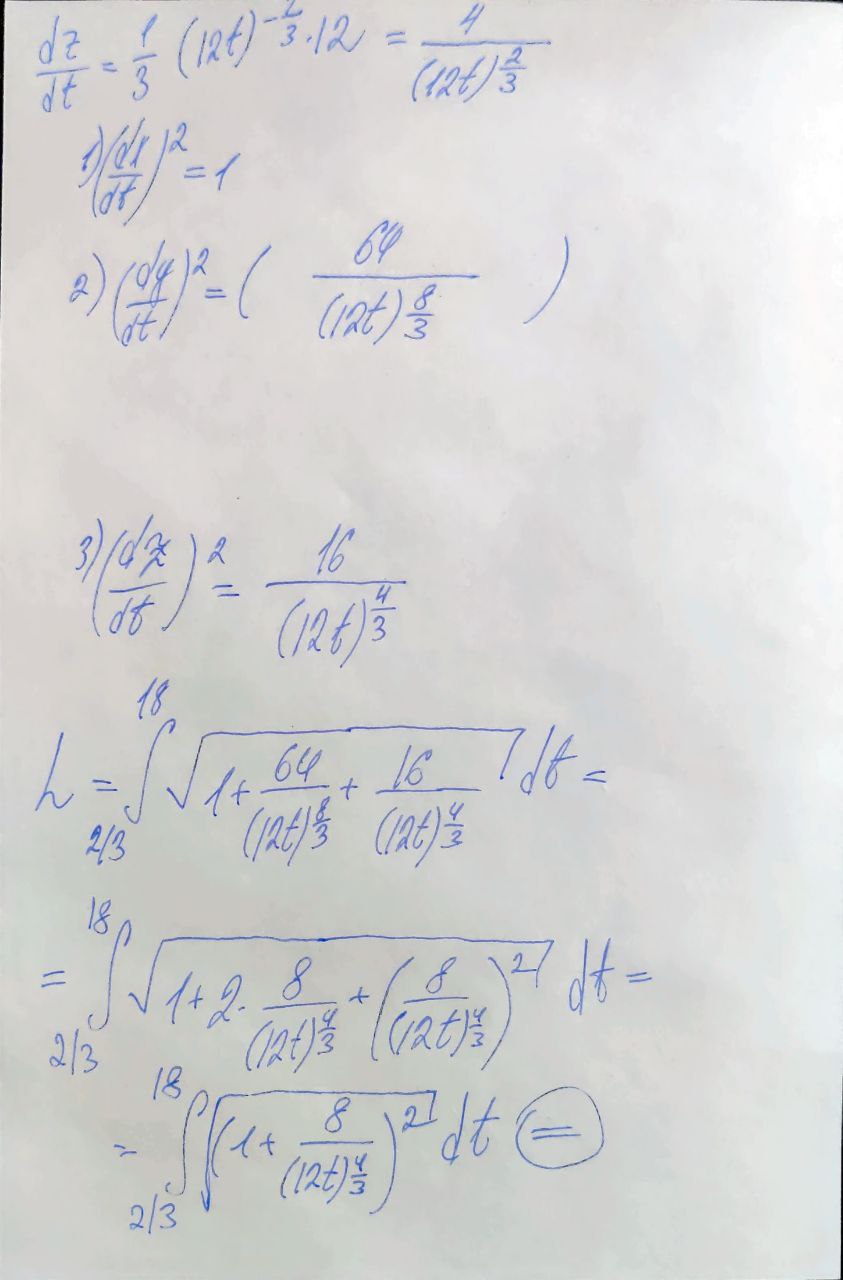 dz/dt = 1/3 (12t)^(-2/3) · 12 = 4/(12t)^(2/3)
1) (dx/dt)^2 = 1
2) (dy/dt)^2 = ( 64/(12t)^(8/3) )
3) (dz/dt)^2 = 16/(12t)^(4/3)
L = ∫_(2/3)^(18) √(1 + 64/(12t)^(8/3) + 16/(12t)^(4/3)) dt =
= ∫_(2/3)^(18) √(1 + 2 · 8/(12t)^(4/3) + (8/(12t)^(4/3))^2) dt =
= ∫_(2/3)^(18) √((1 + 8/(12t)^(4/3))^2) dt =